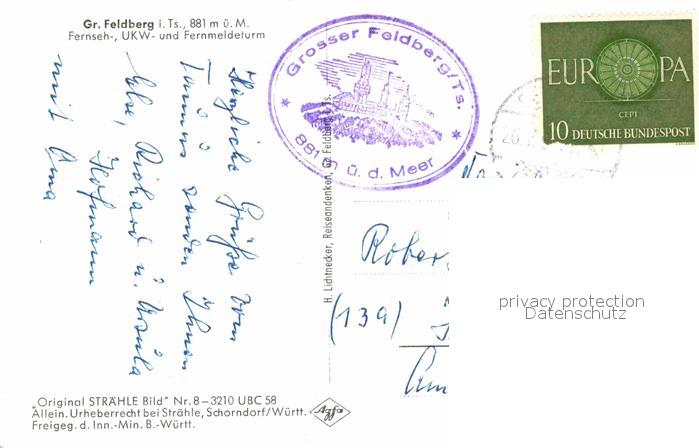 Gr. Feldberg i. Ts., 881 m ü. M.
Fernseh-, UKW- und Fernmeldeturm
Herzliche Grüße vom
Taunus senden Ihnen
Else, Richard u. Ursula
Hofmann
mit Oma
H. Lichtnecker, Reiseandenken, Gr. Feldberg i. Ts.
Grosser Feldberg/Ts.
881 m ü. d. Meer
EUROPA
CEPT
10 DEUTSCHE BUNDESPOST
Rober
(13a)
privacy protection
Datenschutz
„Original STRÄHLE Bild" Nr. 8–3210 UBC 58
Allein. Urheberrecht bei Strähle, Schorndorf/Württ.
Freigeg. d. Inn.-Min. B.-Württ.
Agfa